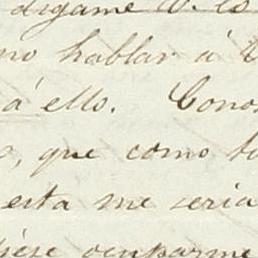 digame V. lo
no hablar á V
á ello. Conos
o, que como tu
esta me seria
ocuparme